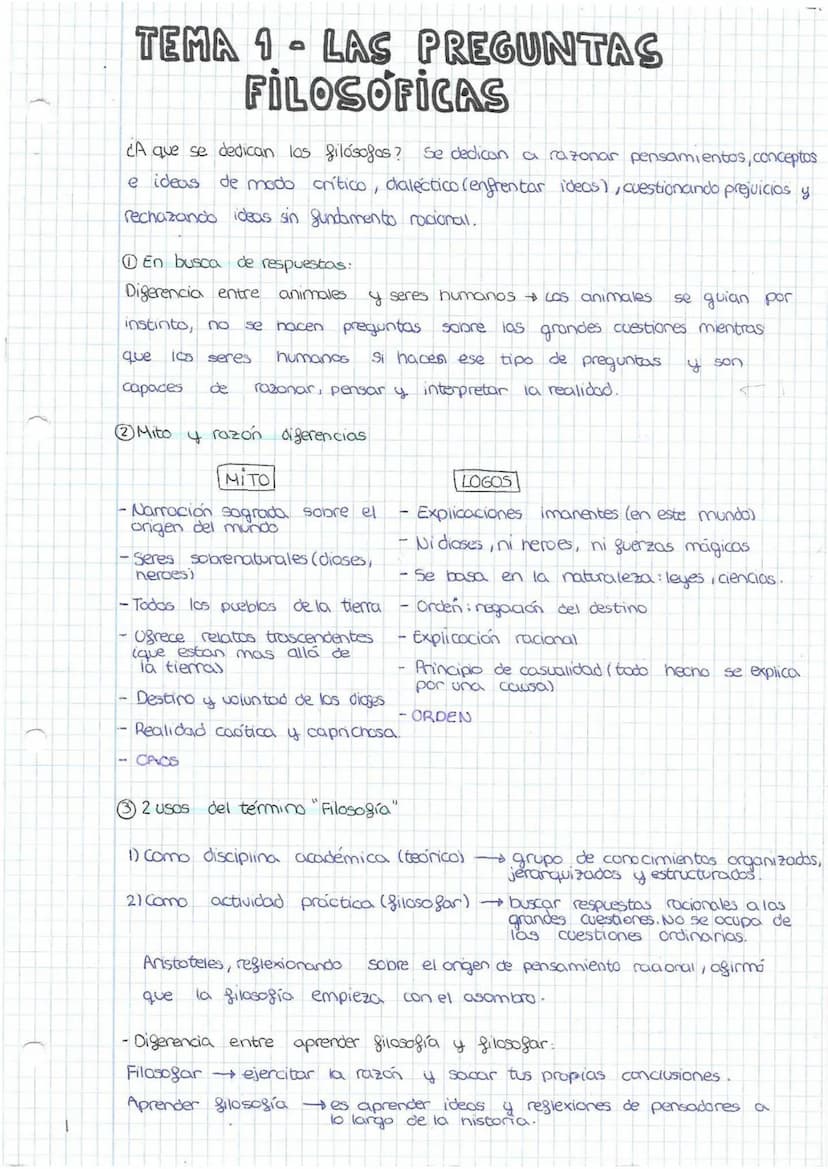 TEMA 1 - LAS PREGUNTAS
FILOSÓFICAS
¿A que se dedican los filósofos? Se dedican a razonar pensamientos, conceptos
e ideas de modo crítico, dialéctico (enfrentar ideas), cuestionando prejuicios y
rechazando ideas sin fundamento racional.
① En busca de respuestas:
Diferencia entre animales y seres humanos → Los animales se guian por
instinto, no se hacen preguntas sobre las grandes cuestiones mientras
que los seres humanos si hacen ese tipo de preguntas y son
capaces de razonar, pensar y interpretar la realidad.
② Mito y razón diferencias
MITO
- Narración sagrada sobre el
origen del mundo
- Seres sobrenaturales (dioses,
heroes)
- Todos los pueblos de la tierra
- Ofrece relatos trascendentes
(que estan mas allá de
la tierras
- Destino y voluntad de los dioses
- Realidad caótica y caprichosa.
- CAOS
LOGOS
- Explicaciones imanentes (en este mundo)
- Ni dioses, ni heroes, ni fuerzas mágicas
- Se basa en la naturaleza: leyes, ciencias.
- Orden: negación del destino
- Explicación racional
- Principio de casualidad (todo hecho se explica
por una causa)
- ORDEN
③ 2 usos del término "Filosofía"
1) Como disciplina académica (teórico) → grupo de conocimientos organizados,
jerarquizados y estructurados.
2) Como actividad práctica (filosofar) → buscar respuestas racionales a las
grandes cuestiones. No se ocupa de
las cuestiones ordinarias.
Aristoteles, reflexionando sobre el origen de pensamiento racional, afirmó
que la filosofía empieza con el asombro.
- Diferencia entre aprender filosofía y filosofar:
Filosofar → ejercitar la razón y sacar tus propias conclusiones.
Aprender filosofía → es aprender ideas y reflexiones de pensadores a
lo largo de la historia.
1